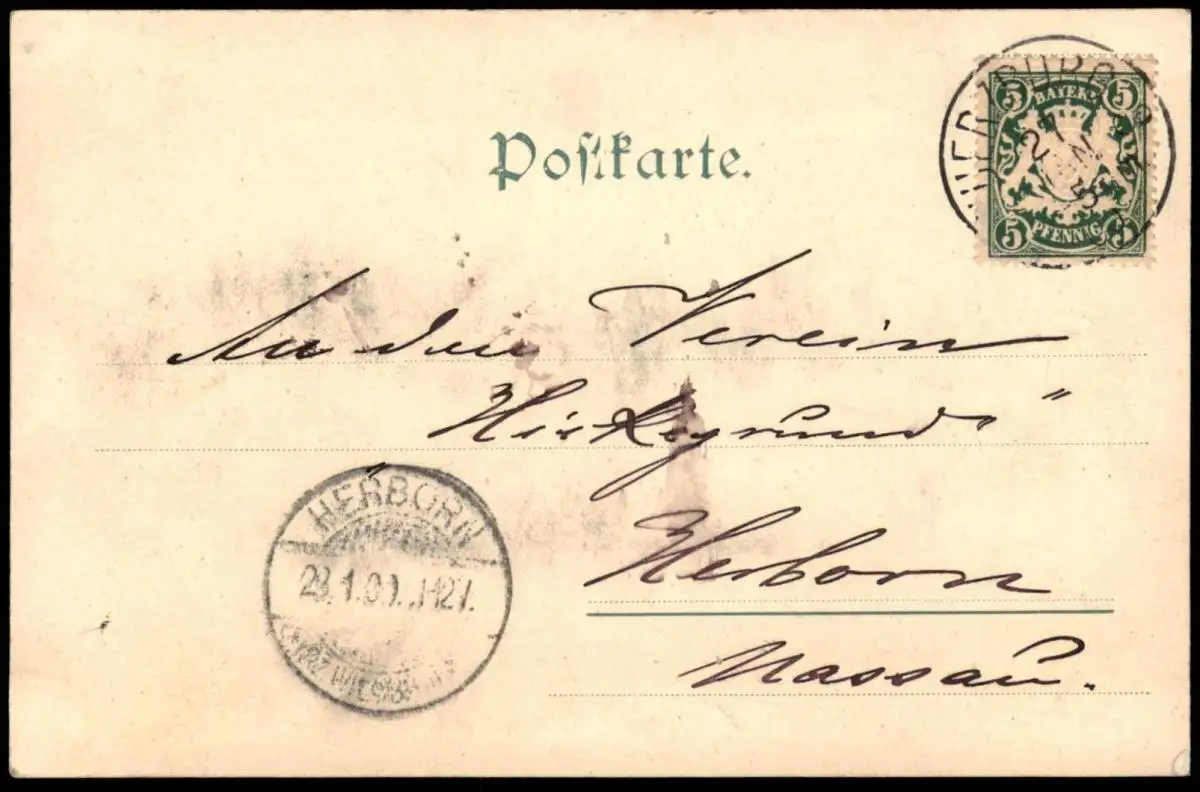 Postkarte.
5 BAYERN 5
5 PFENNIG 5
27
JAN
An den Verein
Hickgrund"
Herborn
Nassau.
HERBORN
28.1.0